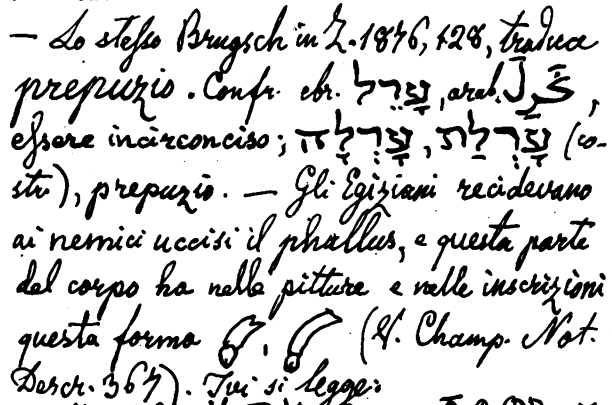 — Lo stesso Brugsch in Z. 1876, 128, traduce
prepuzio. Confr. ebr. עָרֵל, arab. غَرِلَ,
essere incirconciso; עָרְלָה, עָרְלַת (co-
str), prepuzio. — Gli Egiziani recidevano
ai nemici uccisi il phallus, e questa parte
del corpo ha nelle pitture e nelle inscrizioni
questa forma , (V. Champ. Not.
Descr. 367). Ivi si legge: